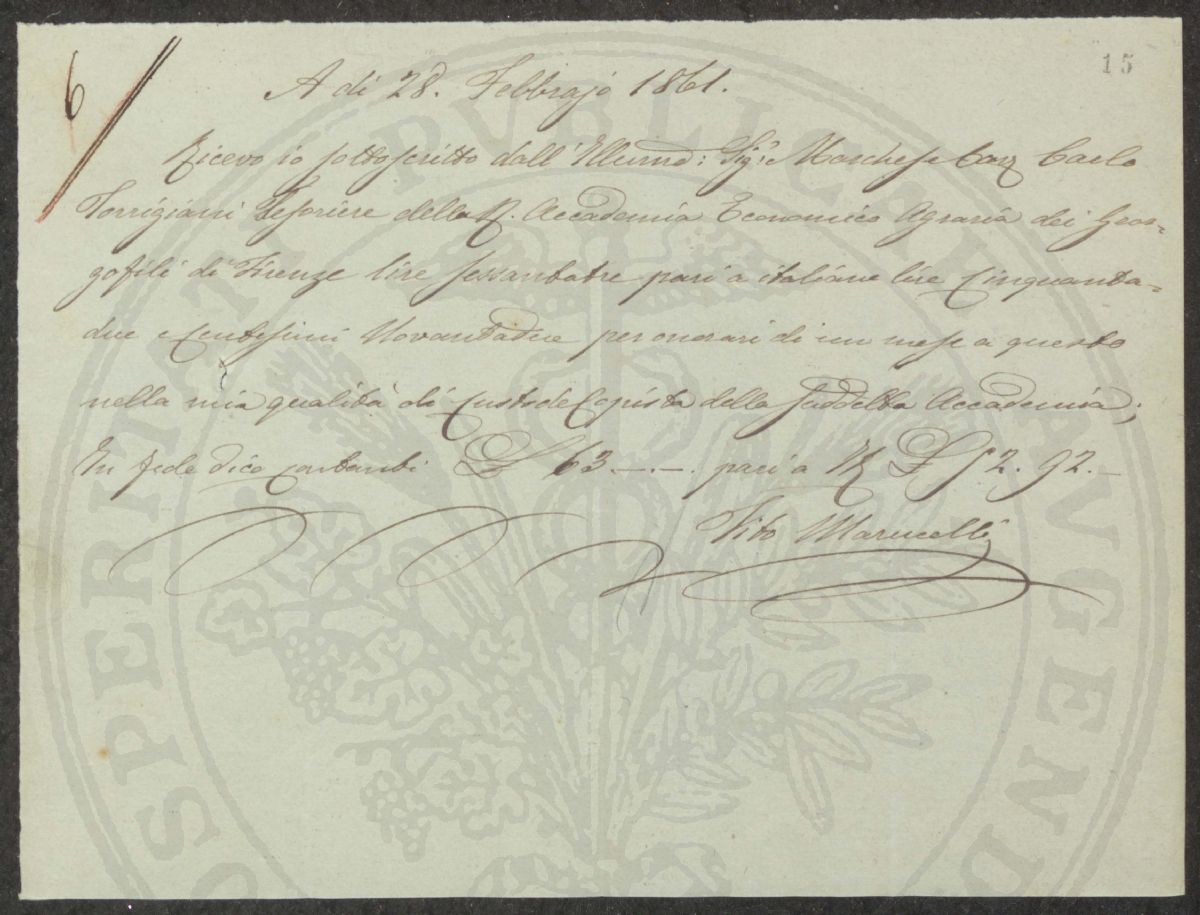 15
6
A di 28. Febbrajo 1861.
Ricevo io sottoscritto dall'Illumo: Sigr: Marchese Cav Carlo
Torrigiani Tesoriere della R. Accademia Economico Agraria dei Geor=
gofili di Firenze lire sessantatre pari a italiane lire Cinquanta=
due e Centesimi Novantadue per onorari di un mese a questo
nella mia qualità di Custode Copista della suddetta Accademia;
In fede dico contanti £ 63.—.—. pari a £ 52.92.—
Tito Marucelli
PROSPERITATI PVBLICAE AVGENDAE